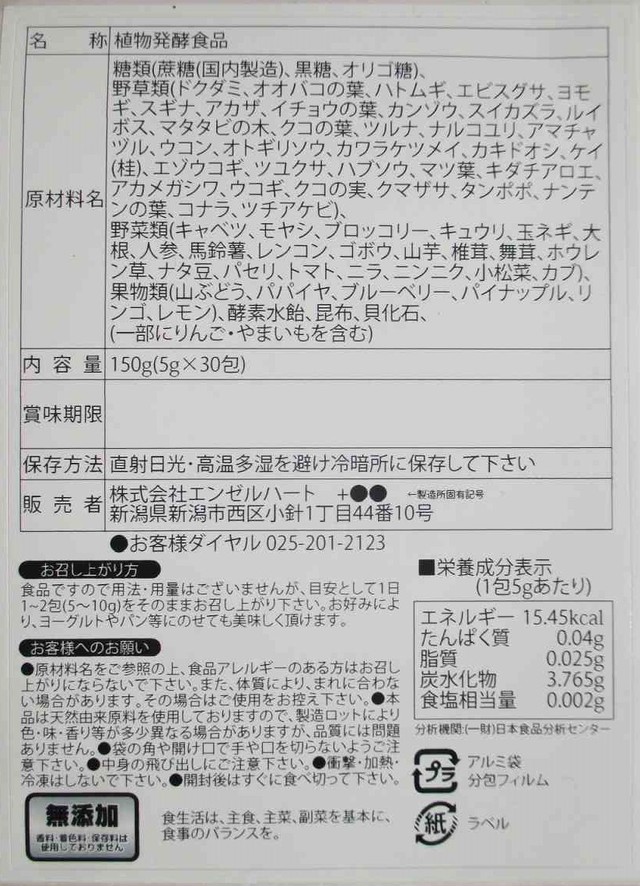 名称 植物発酵食品
原材料名 糖類(蔗糖(国内製造)、黒糖、オリゴ糖)、
野草類(ドクダミ、オオバコの葉、ハトムギ、エビスグサ、ヨモ
ギ、スギナ、アカザ、イチョウの葉、カンゾウ、スイカズラ、ルイ
ボス、マタタビの木、クコの葉、ツルナ、ナルコユリ、アマチャ
ヅル、ウコン、オトギリソウ、カワラケツメイ、カキドオシ、ケイ
(桂)、エゾウコギ、ツユクサ、ハブソウ、マツ葉、キダチアロエ、
アカメガシワ、ウコギ、クコの実、クマザサ、タンポポ、ナンテ
ンの葉、コナラ、ツチアケビ)、
野菜類(キャベツ、モヤシ、ブロッコリー、キュウリ、玉ネギ、大
根、人参、馬鈴薯、レンコン、ゴボウ、山芋、椎茸、舞茸、ホウレ
ン草、ナタ豆、パセリ、トマト、ニラ、ニンニク、小松菜、カブ)、
果物類(山ぶどう、パパイヤ、ブルーベリー、パイナップル、リ
ンゴ、レモン)、酵素水飴、昆布、貝化石、
(一部にりんご・やまいもを含む)
内容量 150g(5g×30包)
賞味期限
保存方法 直射日光・高温多湿を避け冷暗所に保存して下さい
販売者 株式会社エンゼルハート +●● ←製造所固有記号
新潟県新潟市西区小針1丁目44番10号
●お客様ダイヤル 025-201-2123
お召し上がり方
食品ですので用法・用量はございませんが、目安として1日
1~2包(5~10g)をそのままお召し上がり下さい。お好みによ
り、ヨーグルトやパン等にのせても美味しく頂けます。
お客様へのお願い
●原材料名をご参照の上、食品アレルギーのある方はお召し
上がりにならないで下さい。また、体質により、まれに合わな
い場合があります。その場合はご使用をお控え下さい。●本
品は天然由来原料を使用しておりますので、製造ロットにより
色・味・香り等が多少異なる場合がありますが、品質には問題
ありません。●袋の角や開け口で手や口を切らないようご注
意下さい。●中身の飛び出しにご注意下さい。●衝撃・加熱・
冷凍はしないで下さい。●開封後はすぐに食べ切って下さい。
無添加
香料・着色料・保存料は
使用しておりません
食生活は、主食、主菜、副菜を基本に、
食事のバランスを。
■栄養成分表示
(1包5gあたり)
エネルギー 15.45kcal
たんぱく質 0.04g
脂質 0.025g
炭水化物 3.765g
食塩相当量 0.002g
分析機関:(一財)日本食品分析センター
プラ アルミ袋
分包フィルム
紙 ラベル